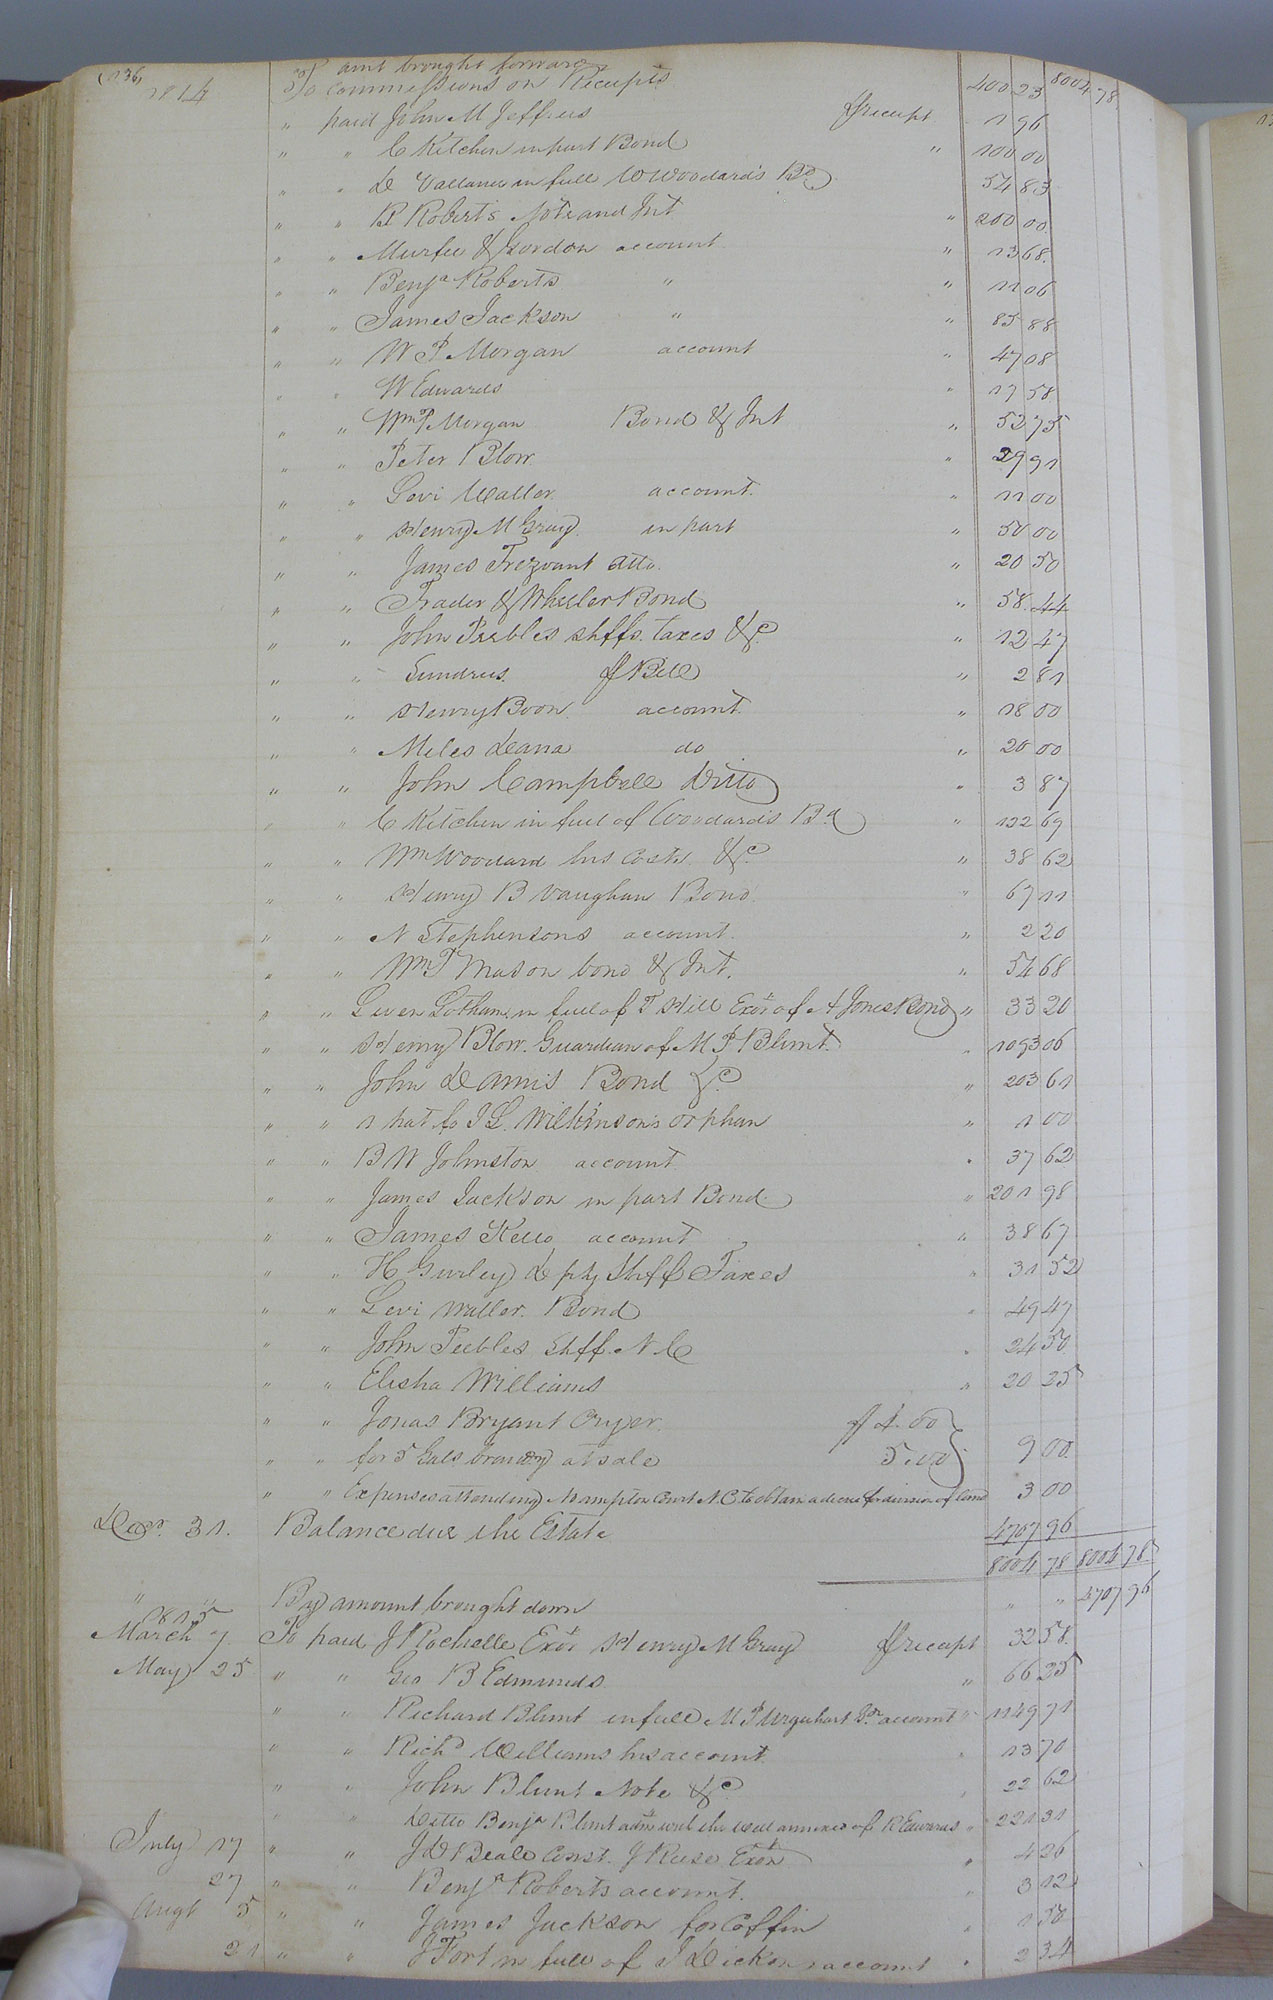 (136)
1814 To amt brought forward 8004 78
To Commissions on Receipts 400 23
" paid John M Jeffries ⅌ receipt 1 96
" " C Kitchen in part Bond " 100 00
" " D Vallance in full W Woodard's Bd 54 83
" " R Roberts Note and Int " 200 00
" " Murfee & Gordon account " 13 68
" " Benja Roberts " " 11 06
" " James Jackson " " 85 88
" " W P Morgan account " 47 08
" " W Edwards " 17 58
" " Wm P Morgan Bond & Int " 52 75
" " Peter Blow " 29 91
" " Levi Waller account " 11 00
" " Henry M Gray in part " 50 00
" " James Trezvant atto. " 20 50
" " Trader & Wheeler Bond " 58 44
" " John Peebles shffs. taxes &c " 12 47
" " Sundries ⅌ Bill " 2 81
" " Henry Boon account " 18 00
" " Miles Deana do " 20 00
" " John Campbell Ditto " 3 87
" " C Kitchen in full of Woodard's Bd " 132 69
" " Wm Woodard his Costs &c " 38 62
" " Henry B Vaughan Bond " 67 11
" " N Stephensons account " 2 20
" " Wm T Mason bond & Int. " 54 68
" " in full of T Hill Exor of A Jones Bond " 33 20
" " Henry Blow Guardian of M P Blunt " 1093 06
" " John D Amis Bond &c " 203 61
" " 1 hat fo J L Wilkinson's orphan " 1 00
" " B W Johnston account " 37 62
" " James Jackson in part Bond " 201 98
" " James Kello account " 38 67
" " H Gurley Dpty Shff Taxes " 31 52
" " Levi Waller Bond " 49 47
" " John Peebles Shff N C " 24 50
" " Elisha Williams " 20 25
" " Jonas Bryant Cryer ⅌ 4.00
" " for 5 Gals brandy at sale 5.00 } 9 00
" " Expenses attending Hampton Court N.C. to obtain a decree for division of land 3 00
Decr. 31. Balance due the Estate 4707 96
8004 78 8004 78
" " By amount brought down " " 4707 96
1815
March 7. To paid J Rochelle Exor Henry M Gray ⅌ receipt 32 58
May 25 " " Geo B Edmunds " 66 25
" " Richard Blunt in full M P Urquhart Gdn account " 1149 71
" " Richd Williams his account " 13 70
" " John Blunt Note &c " 22 62
" " Ditto Benja Blunt adm with the will annexed of R Edwards " 221 31
July 17 " " J D Beale Const. J Reese Exor " 4 26
27 " " Benja Roberts account " 3 12
Augt 5 " " James Jackson for Coffin " 1 50
21 " " J Fort in full of J Dicken account " 2 34